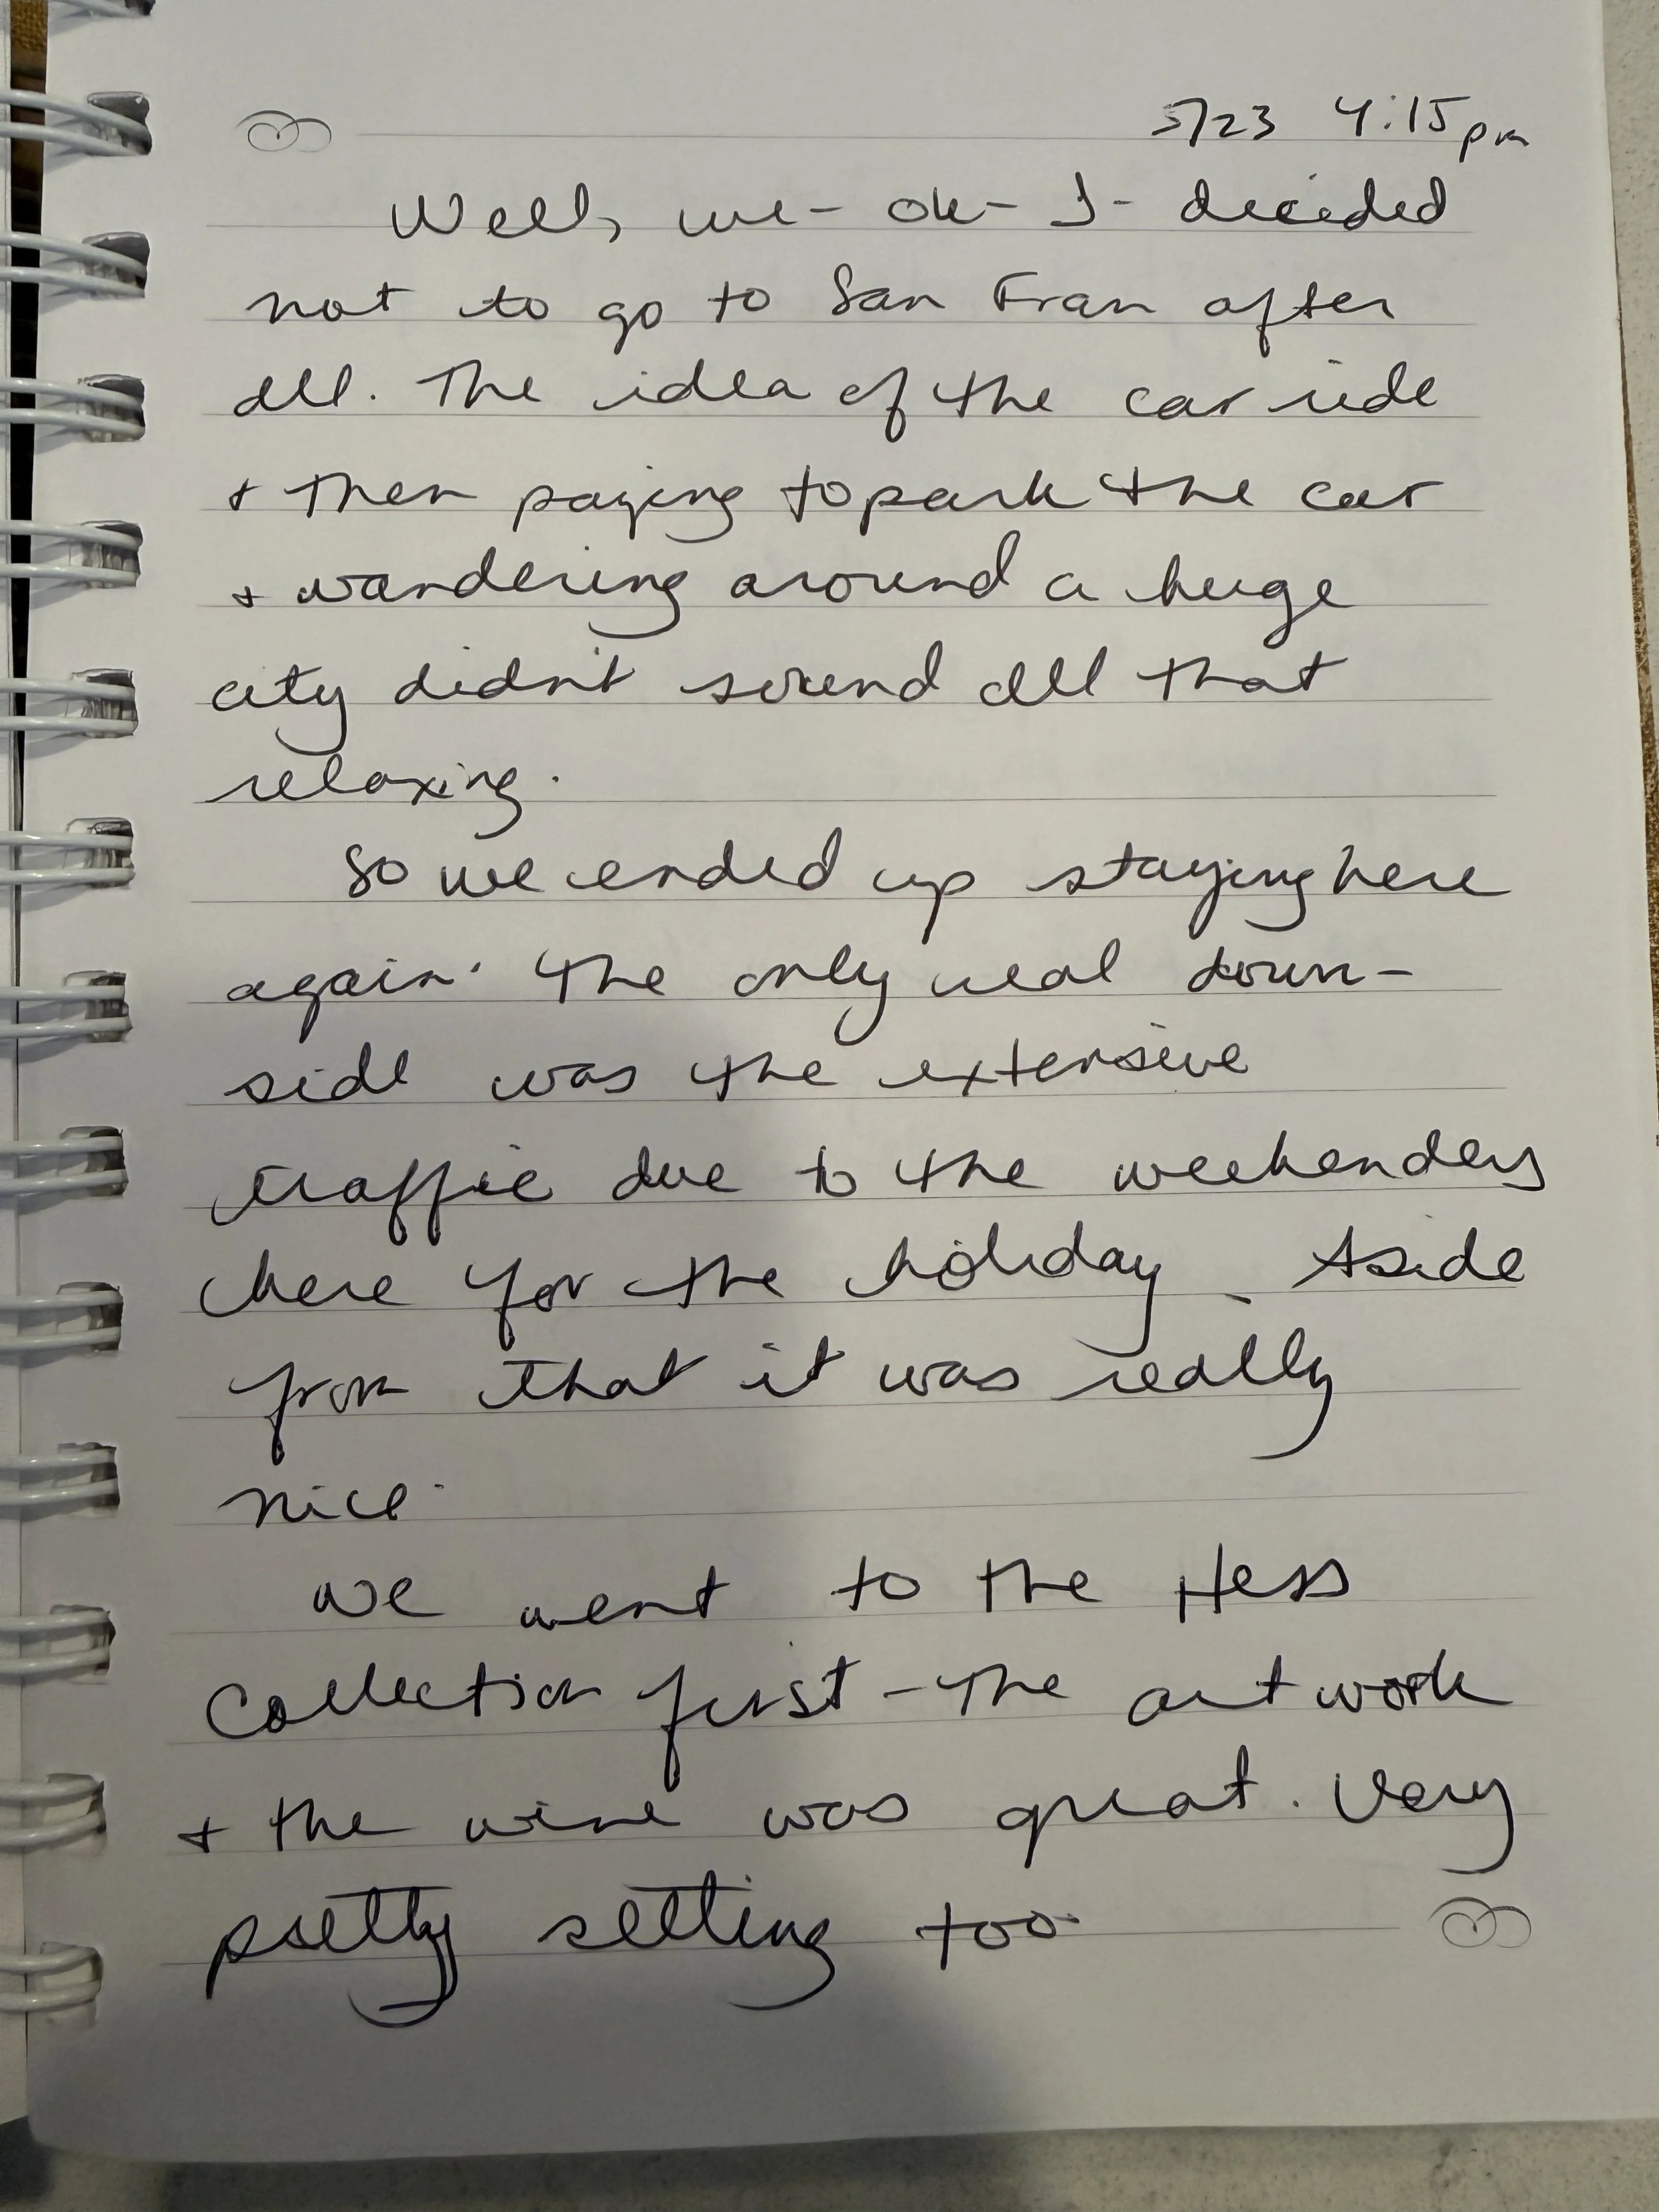 5/23 4:15pm
Well, we - ok - I - decided
not to go to San Fran after
all. The idea of the car ride
+ then paying to park the car
+ wandering around a huge
city didn't sound all that
relaxing.
So we ended up staying here
again. The only real down-
side was the extensive
traffic due to the weekenders
here for the holiday. Aside
from that it was really
nice.
We went to the Hess
Collection first - the artwork
+ the wine was great. Very
pretty setting too.